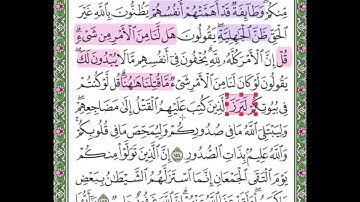 مِنكُمْ وَطَآئِفَةٌ قَدْ أَهَمَّتْهُمْ أَنفُسُهُمْ يَظُنُّونَ بِٱللَّهِ غَيْرَ
ٱلْحَقِّ ظَنَّ ٱلْجَٰهِلِيَّةِ يَقُولُونَ هَل لَّنَا مِنَ ٱلْأَمْرِ مِن شَىْءٍ
قُلْ إِنَّ ٱلْأَمْرَ كُلَّهُۥ لِلَّهِ يُخْفُونَ فِىٓ أَنفُسِهِم مَّا لَا يُبْدُونَ لَكَ
يَقُولُونَ لَوْ كَانَ لَنَا مِنَ ٱلْأَمْرِ شَىْءٌ مَّا قُتِلْنَا هَٰهُنَا قُل لَّوْ كُنتُمْ
فِى بُيُوتِكُمْ لَبَرَزَ ٱلَّذِينَ كُتِبَ عَلَيْهِمُ ٱلْقَتْلُ إِلَىٰ مَضَاجِعِهِمْ
وَلِيَبْتَلِىَ ٱللَّهُ مَا فِى صُدُورِكُمْ وَلِيُمَحِّصَ مَا فِى قُلُوبِكُمْ
وَٱللَّهُ عَلِيمٌۢ بِذَاتِ ٱلصُّدُورِ ١٥٤ إِنَّ ٱلَّذِينَ تَوَلَّوْا۟ مِنكُمْ
يَوْمَ ٱلْتَقَى ٱلْجَمْعَانِ إِنَّمَا ٱسْتَزَلَّهُمُ ٱلشَّيْطَٰنُ بِبَعْضِ